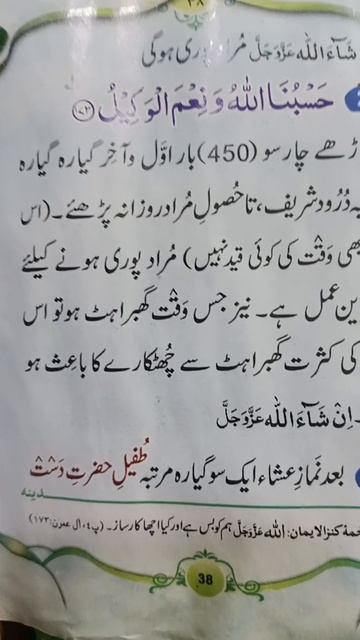 ۳۸
شَآءَ اللہ عَزَّوَجَلَّ مُراد پوری ہوگی
حَسْبُنَا اللّٰهُ وَ نِعْمَ الْوَكِیْلُ ﴿۱۷۳﴾
ڑھے چار سو (450) بار اوّل و آخر گیارہ گیارہ
بہ دُرُود شریف، تاحُصولِ مُراد روزانہ پڑھئے۔ (اس
بھی وَقْت کی کوئی قید نہیں) مُراد پوری ہونے کیلئے
ین عمل ہے۔ نیز جس وَقْت گھبراہٹ ہو تو اس
کی کثرت گھبراہٹ سے چُھٹکارے کا باعث ہو
۔اِنْ شَآءَ اللہ عَزَّوَجَلَّ
بعد نَمازِ عشاء ایک سو گیارہ مرتبہ طُفیلِ حضرتِ دَسْت
مدینہ
حمۂ کنزالایمان: اللہ عَزَّوَجَلَّ ہم کو بس ہے اور کیا اچھا کارساز۔ (پ۴، ال عمرٰن: ۱۷۳)
38